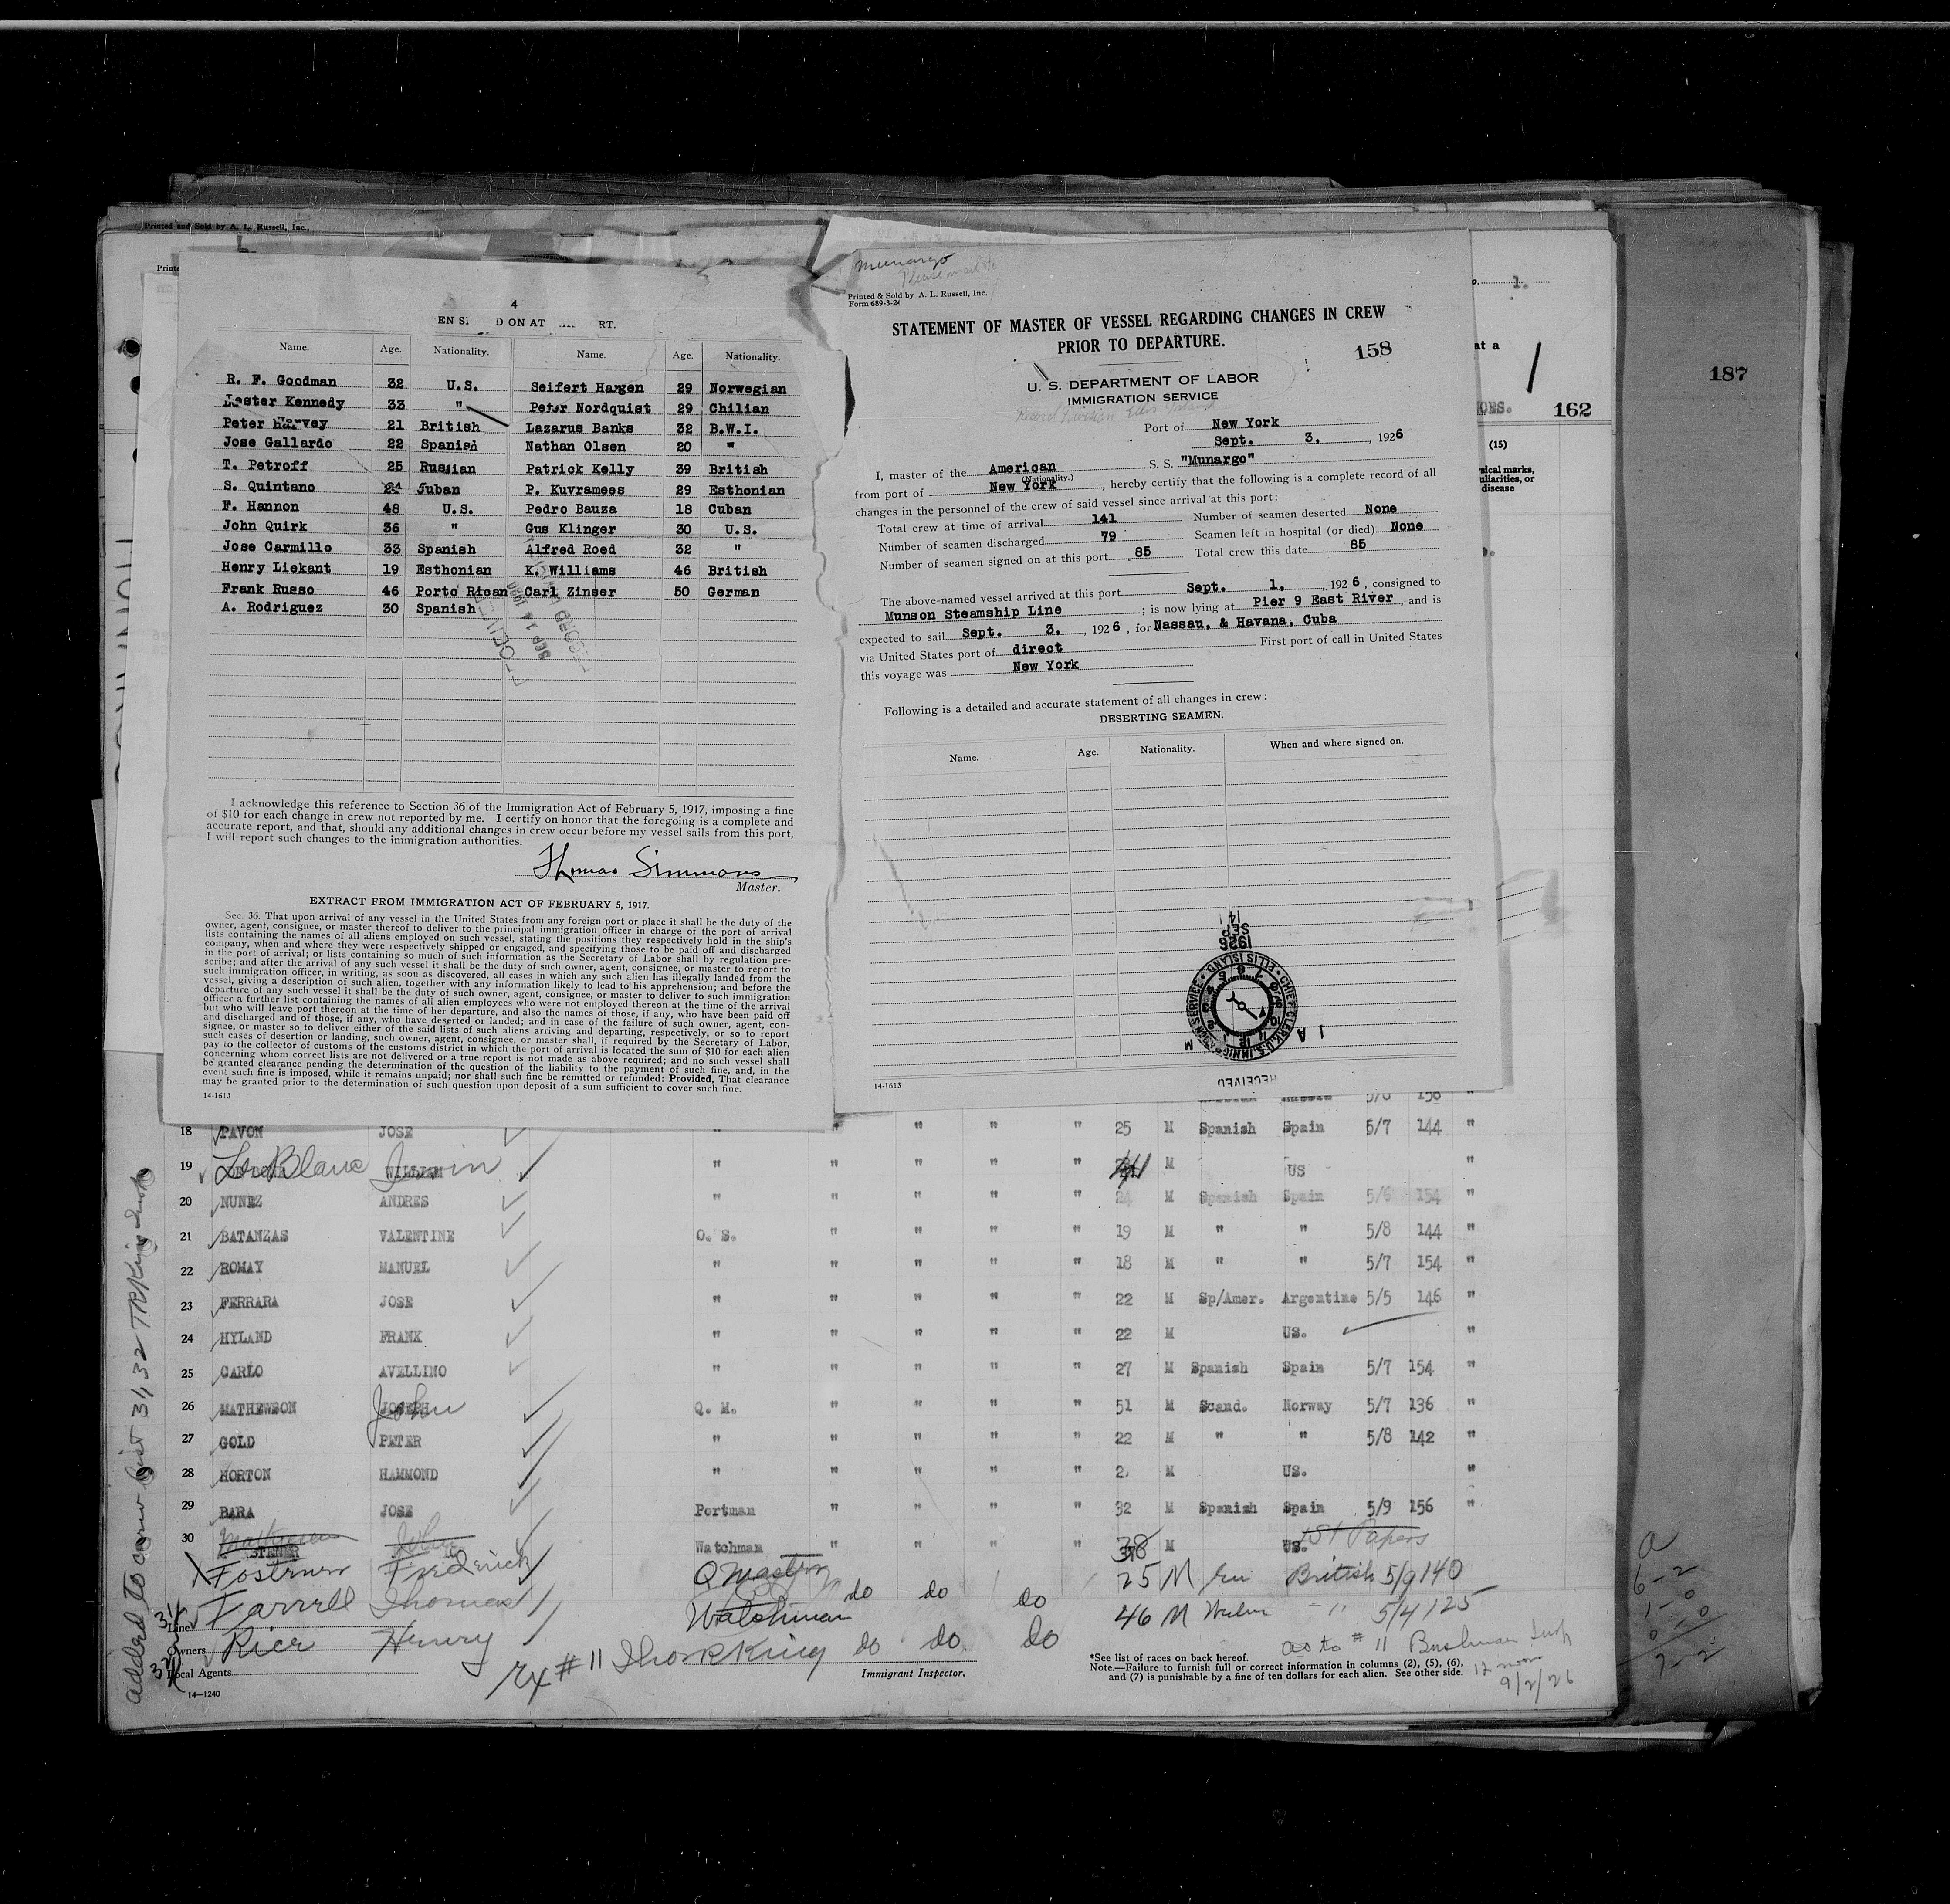 Printed and Sold by A. L. Russell, Inc.,
4
EN SI D ON AT RT.
Name. Age. Nationality. Name. Age. Nationality.
R. F. Goodman 32 U.S. Seifert Hargen 29 Norwegian
Lester Kennedy 33 " Peter Nordquist 29 Chilian
Peter Harvey 21 British Lazarus Banks 32 B.W.I.
Jose Gallardo 22 Spanish Nathan Olsen 20 "
T. Petroff 25 Russian Patrick Kelly 39 British
S. Quintano 24 Cuban P. Kuvramees 29 Esthonian
F. Hannon 48 U.S. Pedro Bauza 18 Cuban
John Quirk 36 " Gus Klinger 30 U.S.
Jose Carmillo 33 Spanish Alfred Roed 32 "
Henry Liekant 19 Esthonian K. Williams 46 British
Frank Russo 46 Porto Rican Carl Zinser 50 German
A. Rodriguez 30 Spanish
I acknowledge this reference to Section 36 of the Immigration Act of February 5, 1917, imposing a fine
of $10 for each change in crew not reported by me. I certify on honor that the foregoing is a complete and
accurate report, and that, should any additional changes in crew occur before my vessel sails from this port,
I will report such changes to the immigration authorities.
Thomas Simmons
Master.
EXTRACT FROM IMMIGRATION ACT OF FEBRUARY 5, 1917.
Sec. 36. That upon arrival of any vessel in the United States from any foreign port or place it shall be the duty of the
owner, agent, consignee, or master thereof to deliver to the principal immigration officer in charge of the port of arrival
lists containing the names of all aliens employed on such vessel, stating the positions they respectively hold in the ship's
company, when and where they were respectively shipped or engaged, and specifying those to be paid off and discharged
in the port of arrival; or lists containing so much of such information as the Secretary of Labor shall by regulation pre-
scribe; and after the arrival of any such vessel it shall be the duty of such owner, agent, consignee, or master to report to
such immigration officer, in writing, as soon as discovered, all cases in which any such alien has illegally landed from the
vessel, giving a description of such alien, together with any information likely to lead to his apprehension; and before the
departure of any such vessel it shall be the duty of such owner, agent, consignee, or master to deliver to such immigration
officer a further list containing the names of all alien employees who were not employed thereon at the time of the arrival
but who will leave port thereon at the time of her departure, and also the names of those, if any, who have been paid off
and discharged and of those, if any, who have deserted or landed; and in case of the failure of such owner, agent, con-
signee, or master so to deliver either of the said lists of such aliens arriving and departing, respectively, or so to report
such cases of desertion or landing, such owner, agent, consignee, or master shall, if required by the Secretary of Labor,
pay to the collector of customs of the customs district in which the port of arrival is located the sum of $10 for each alien
concerning whom correct lists are not delivered or a true report is not made as above required; and no such vessel shall
be granted clearance pending the determination of the question of the liability to the payment of such fine, and, in the
event such fine is imposed, while it remains unpaid; nor shall such fine be remitted or refunded: Provided, That clearance
may be granted prior to the determination of such question upon deposit of a sum sufficient to cover such fine.
14-1613
Munargo
Please mail to
Printed & Sold by A. L. Russell, Inc.
Form 689-3-24
STATEMENT OF MASTER OF VESSEL REGARDING CHANGES IN CREW
PRIOR TO DEPARTURE.
158
U. S. DEPARTMENT OF LABOR
IMMIGRATION SERVICE
Record Division Ellis Island
Port of New York
Sept. 3, , 1926
I, master of the American S. S. "Munargo"
(Nationality.)
from port of New York , hereby certify that the following is a complete record of all
changes in the personnel of the crew of said vessel since arrival at this port:
Total crew at time of arrival 141 Number of seamen deserted None
Number of seamen discharged 79 Seamen left in hospital (or died) None
Number of seamen signed on at this port 85 Total crew this date 85
The above-named vessel arrived at this port Sept. 1. , 1926 , consigned to
Munson Steamship Line ; is now lying at Pier 9 East River , and is
expected to sail Sept. 3. , 1926 , for Nassau, & Havana, Cuba
via United States port of direct First port of call in United States
this voyage was New York
Following is a detailed and accurate statement of all changes in crew:
DESERTING SEAMEN.
Name. Age. Nationality. When and where signed on.
14 SEP 1926
CHIEF CLERK, U.S. IMMIGRATION SERVICE • ELLIS ISLAND
RECEIVED
14-1613
1.
at a
162
187
(15)
sical marks,
uliarities, or
disease
18 PAVON JOSE " " " 25 M Spanish Spain 5/7 144 "
19 LeBlanc Irvin WILLIAM " " " " 41 M US "
20 NUNEZ ANDRES " " " " 24 M Spanish Spain 5/6 154 "
21 BATANZAS VALENTINE O. S. " " " " 19 M " " 5/8 144 "
22 ROMAY MANUEL " " " " " 18 M " " 5/7 154 "
23 FERRARA JOSE " " " " " 22 M Sp/Amer. Argentine 5/5 146 "
24 HYLAND FRANK " " " " " 22 M US. "
25 CARLO AVELLINO " " " " " 27 M Spanish Spain 5/7 154 "
26 MATHEWSON JOSEPH John Q. M. " " " " 51 M Scand. Norway 5/7 136 "
27 GOLD PETER " " " " " 22 M " " 5/8 142 "
28 HORTON HAMMOND " " " " " 2 M US. "
29 BARA JOSE Portman " " " " 32 M Spanish Spain 5/9 156 "
30 Mathewson John Watchman " " " " 38 M US. 1st Papers
Frederick Q Master 25 M British 5/9 140
31 Farrell Thomas Watchman do do do 46 M " 5/4 125
Line
Owners
32 Rice Henry do do do
Local Agents
14-1240
Immigrant Inspector.
*See list of races on back hereof.
Note.—Failure to furnish full or correct information in columns (2), (5), (6),
and (7) is punishable by a fine of ten dollars for each alien. See other side.
as to #11 Bushman Insp
12 noon
9/2/26
added to crew list 31, 32
6-2
1-0
0-0
7-2